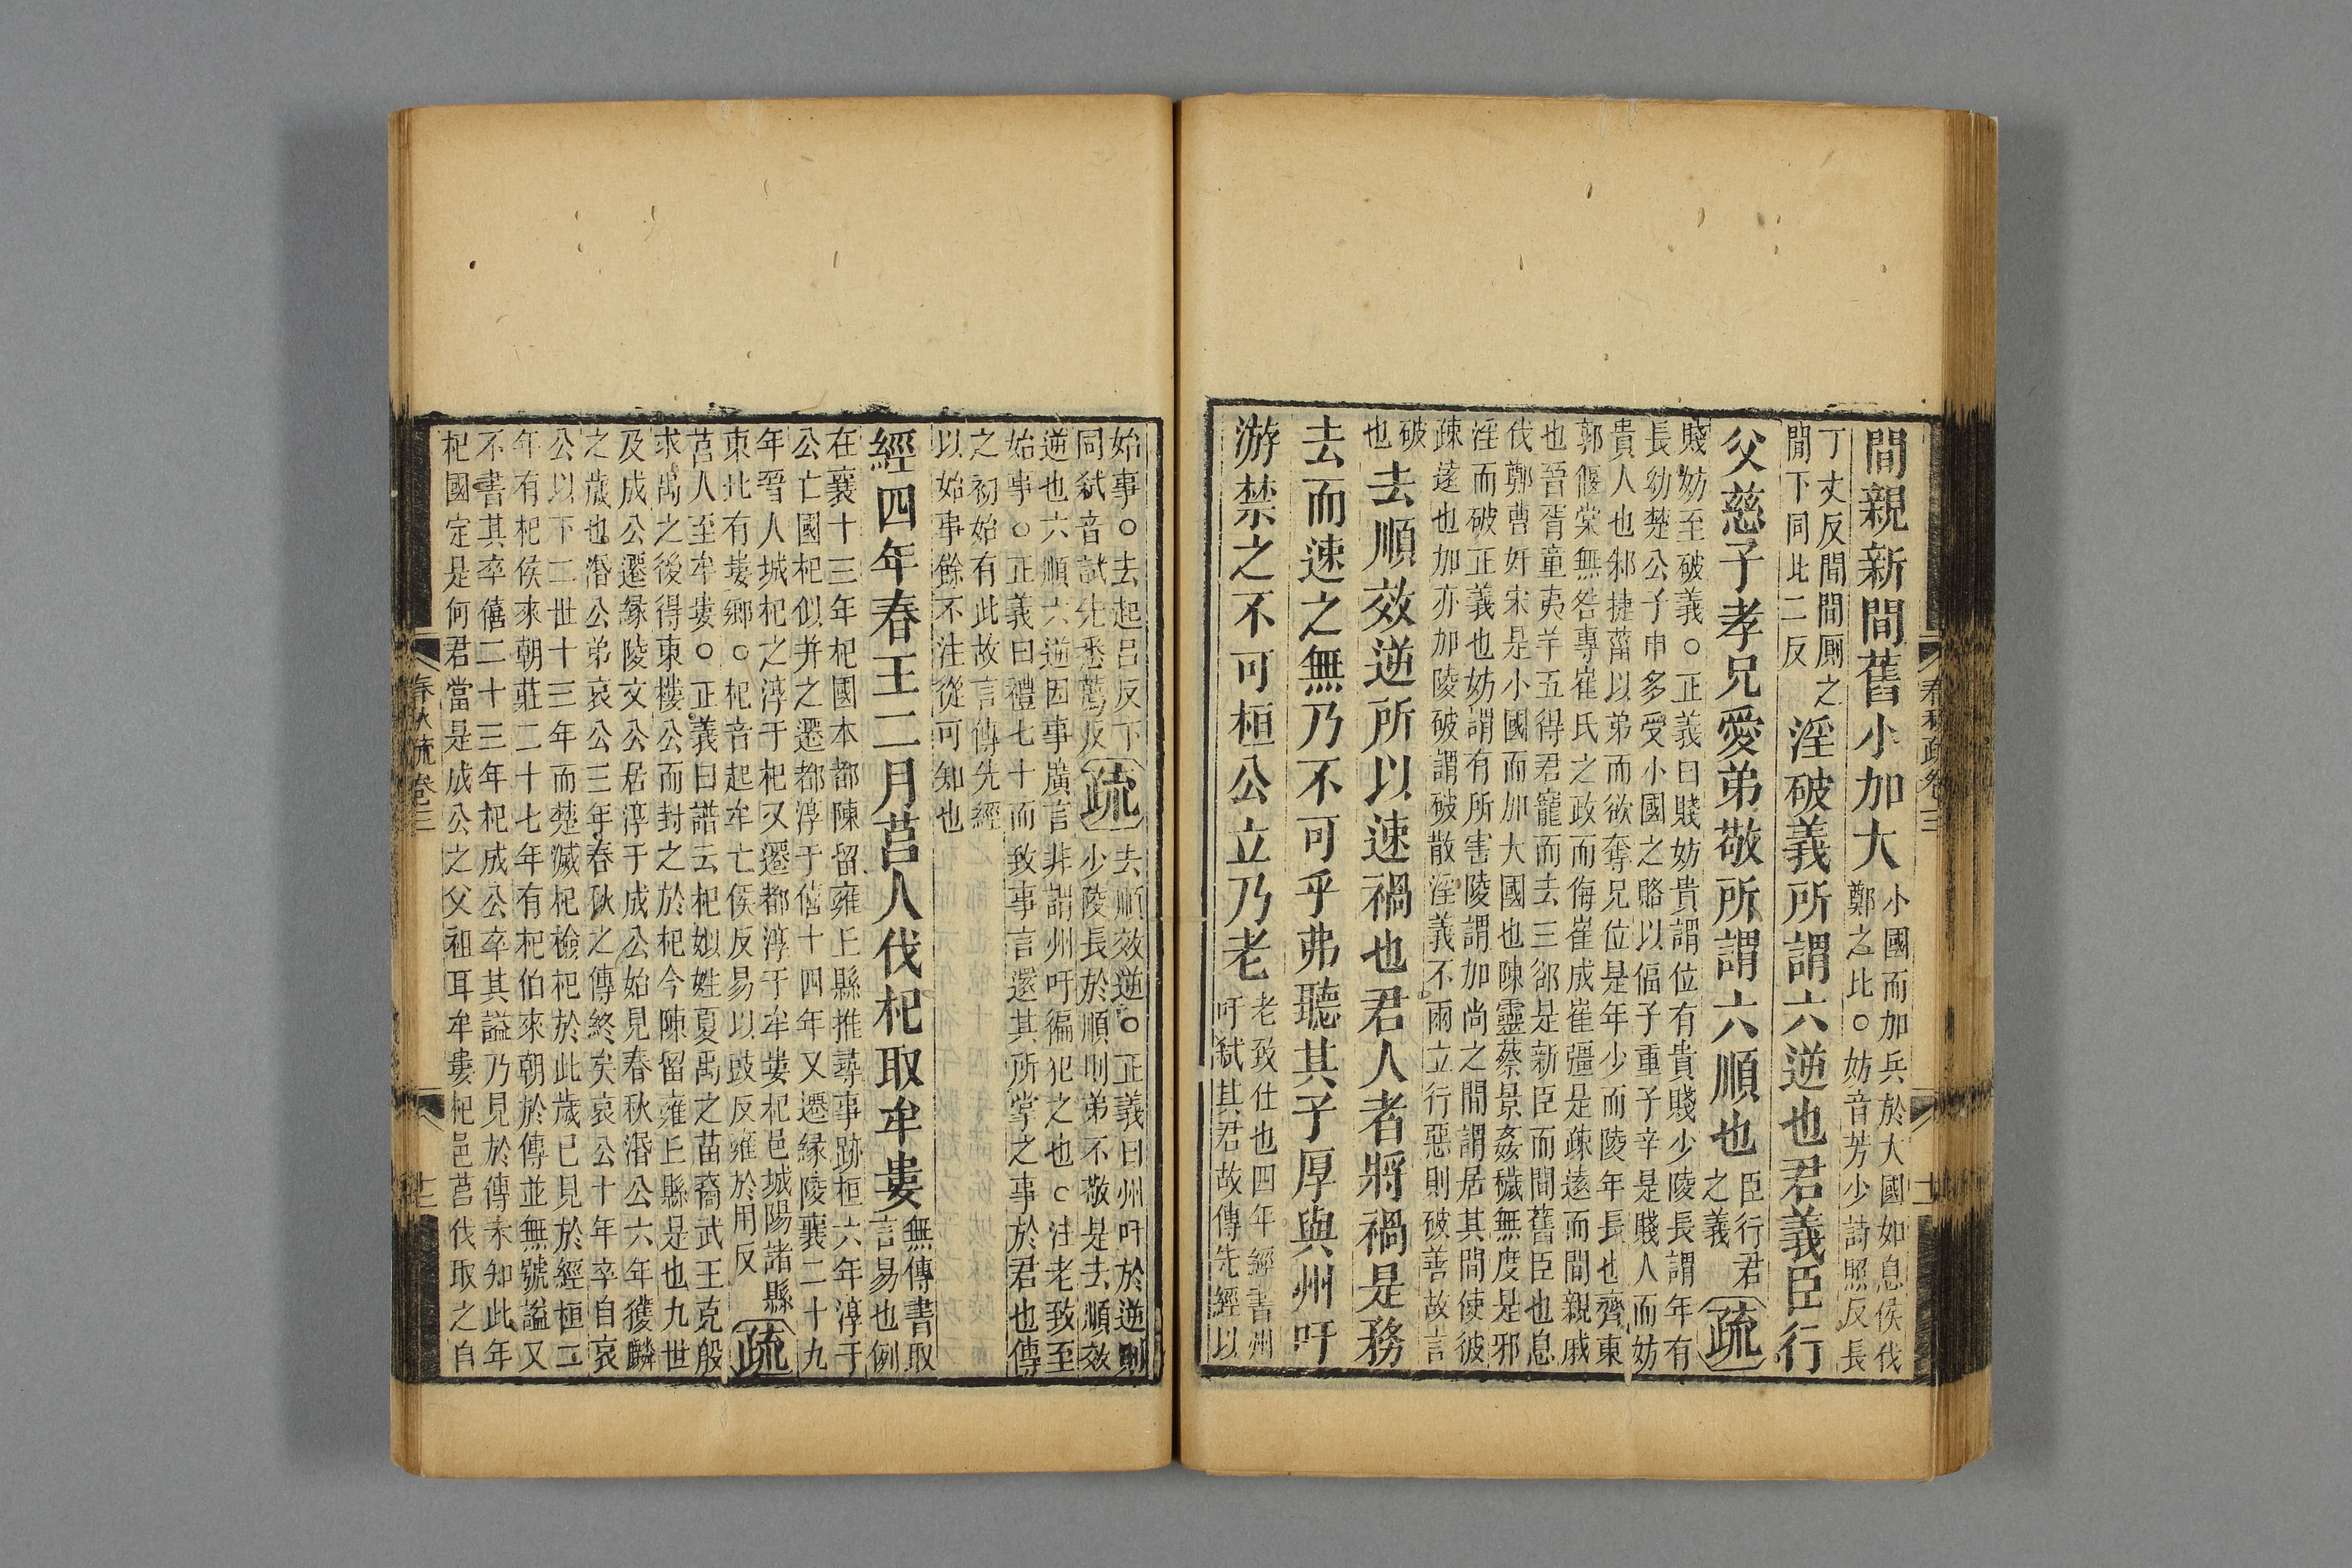 間親新間舊小加大
小國而加兵於大國如息侯伐
鄭之比○妨音芳少詩照反長
丁丈反間間廁之
間下同此二反
淫破義所謂六逆也君義臣行
父慈子孝兄愛弟敬所謂六順也
臣行君
之義
疏
賤妨至破義○正義曰賤妨貴謂位有貴賤少陵長謂年有
長幼楚公子申多受小國之賂以偪子重子辛是賤人而妨
貴人也邾捷菑以弟而欲奪兄位是年少而陵年長也齊東
郭偃棠無咎專崔氏之政而侮崔成崔彊是疎遠而間親戚
也晉胥童夷羊五得君寵而去三郤是新臣而間舊臣也息
伐鄭曹奸宋是小國而加大國也陳靈蔡景姦穢無度是邪
淫而破正義也妨謂有所害陵謂加尚之間謂居其間使彼
疎遠也加亦加陵破謂破散淫義不兩立行惡則破善故言
破
也
去順效逆所以速禍也君人者將禍是務
去而速之無乃不可乎弗聽其子厚與州吁
游禁之不可桓公立乃老
老致仕也四年經書州
吁弒其君故傳先經以
始事○去起呂反下
同弒音試先悉薦反
疏
去順效逆○正義曰州吁於逆則
少陵長於順則弟不敬是去順效
逆也六順六逆因事廣言非謂州吁徧犯之也○注老致至
始事○正義曰禮七十而致事言還其所掌之事於君也傳
之初始有此故言傳先經
以始事餘不注從可知也
經四年春王二月莒人伐杞取牟婁
無傳書取
言易也例
在襄十三年杞國本都陳留雍丘縣推尋事跡桓六年淳于
公亡國杞似并之遷都淳于僖十四年又遷緣陵襄二十九
年晉人城杞之淳于杞又遷都淳于牟婁杞邑城陽諸縣
東北有婁鄉○杞音起牟亡侯反易以豉反雍於用反
疏
莒人至牟婁○正義曰譜云杞姒姓夏禹之苗裔武王克殷
求禹之後得東樓公而封之於杞今陳留雍丘縣是也九世
及成公遷緣陵文公居淳于成公始見春秋湣公六年獲麟
之歲也湣公弟哀公三年春秋之傳終矣哀公十年卒自哀
公以下二世十三年而楚滅杞檢杞於此歲已見於經桓二
年有杞侯來朝莊二十七年有杞伯來朝於傳並無號謚又
不書其卒僖二十三年杞成公卒其謚乃見於傳未知此年
杞國定是何君當是成公之父祖耳牟婁杞邑莒伐取之自
春秋疏卷三
十一
春秋疏卷三
十二